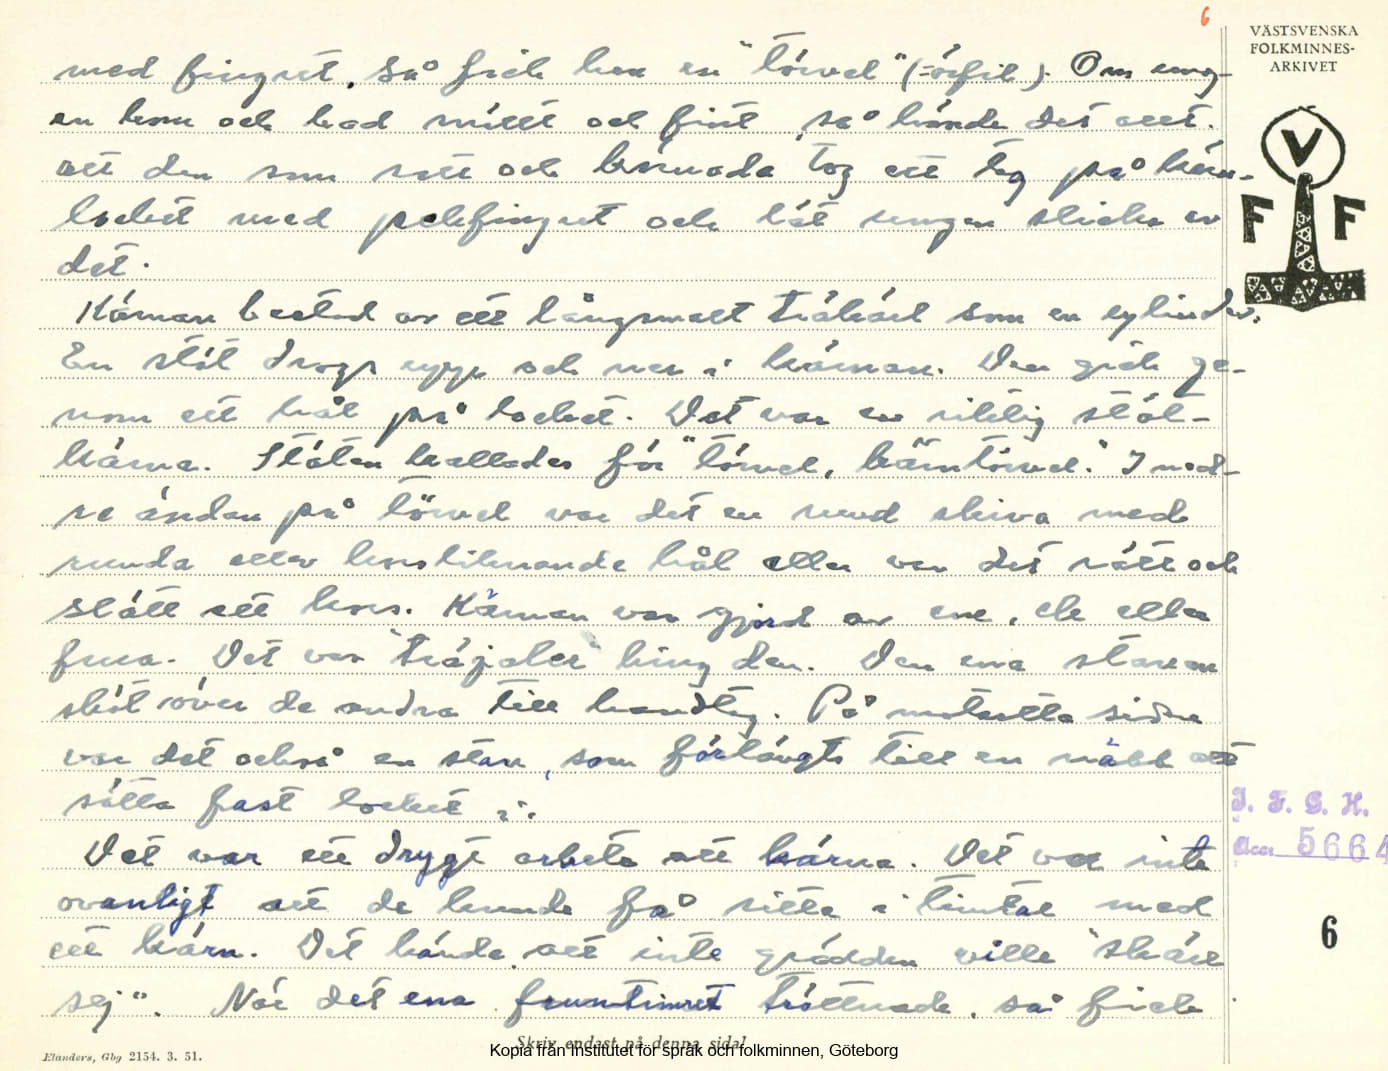 6
VÄSTSVENSKA
FOLKMINNES-
ARKIVET
V
F F
med fingret, så fick han en "törvel" (=örfil). Om ung-
en kom och bad snällt och fint, så hände det att
att den som satt och kärnade tog ett tag på kärn-
locket med pekfingret och lät ungen slicka av
det.
Kärnan bestod av ett långsmalt träkärl som en cylinder.
En stöt drogs upp och ner i kärnan. Den gick ge-
nom ett hål på locket. Det var en riktig stöt-
kärna. Stöten kallades för "törvel, kärntörvel." I ned-
re ändan på törvel var det en rund skiva med
runda eller korsliknande hål eller var det rätt och
slätt ett kors. Kärnan var gjord av ene, ek eller
furu. Det var "träjoler" kring den. Den ena staven
sköt över de andra till handtag. På motsatta sidan
var det också en stav, som förlängts till en näbb att
sätta fast locket i.
Det var ett drygt arbete att kärna. Det var inte
ovanligt att de kunde få sitta i timtal med
ett kärn. Det hände att inte grädden ville "skära
sej". När det ena fruntimret tröttnade, så fick
I. F. G. H.
Acc. 5664
6
Skriv endast på denna sida!
Elanders, Gbg 2154. 3. 51.
Kopia från Institutet för språk och folkminnen, Göteborg